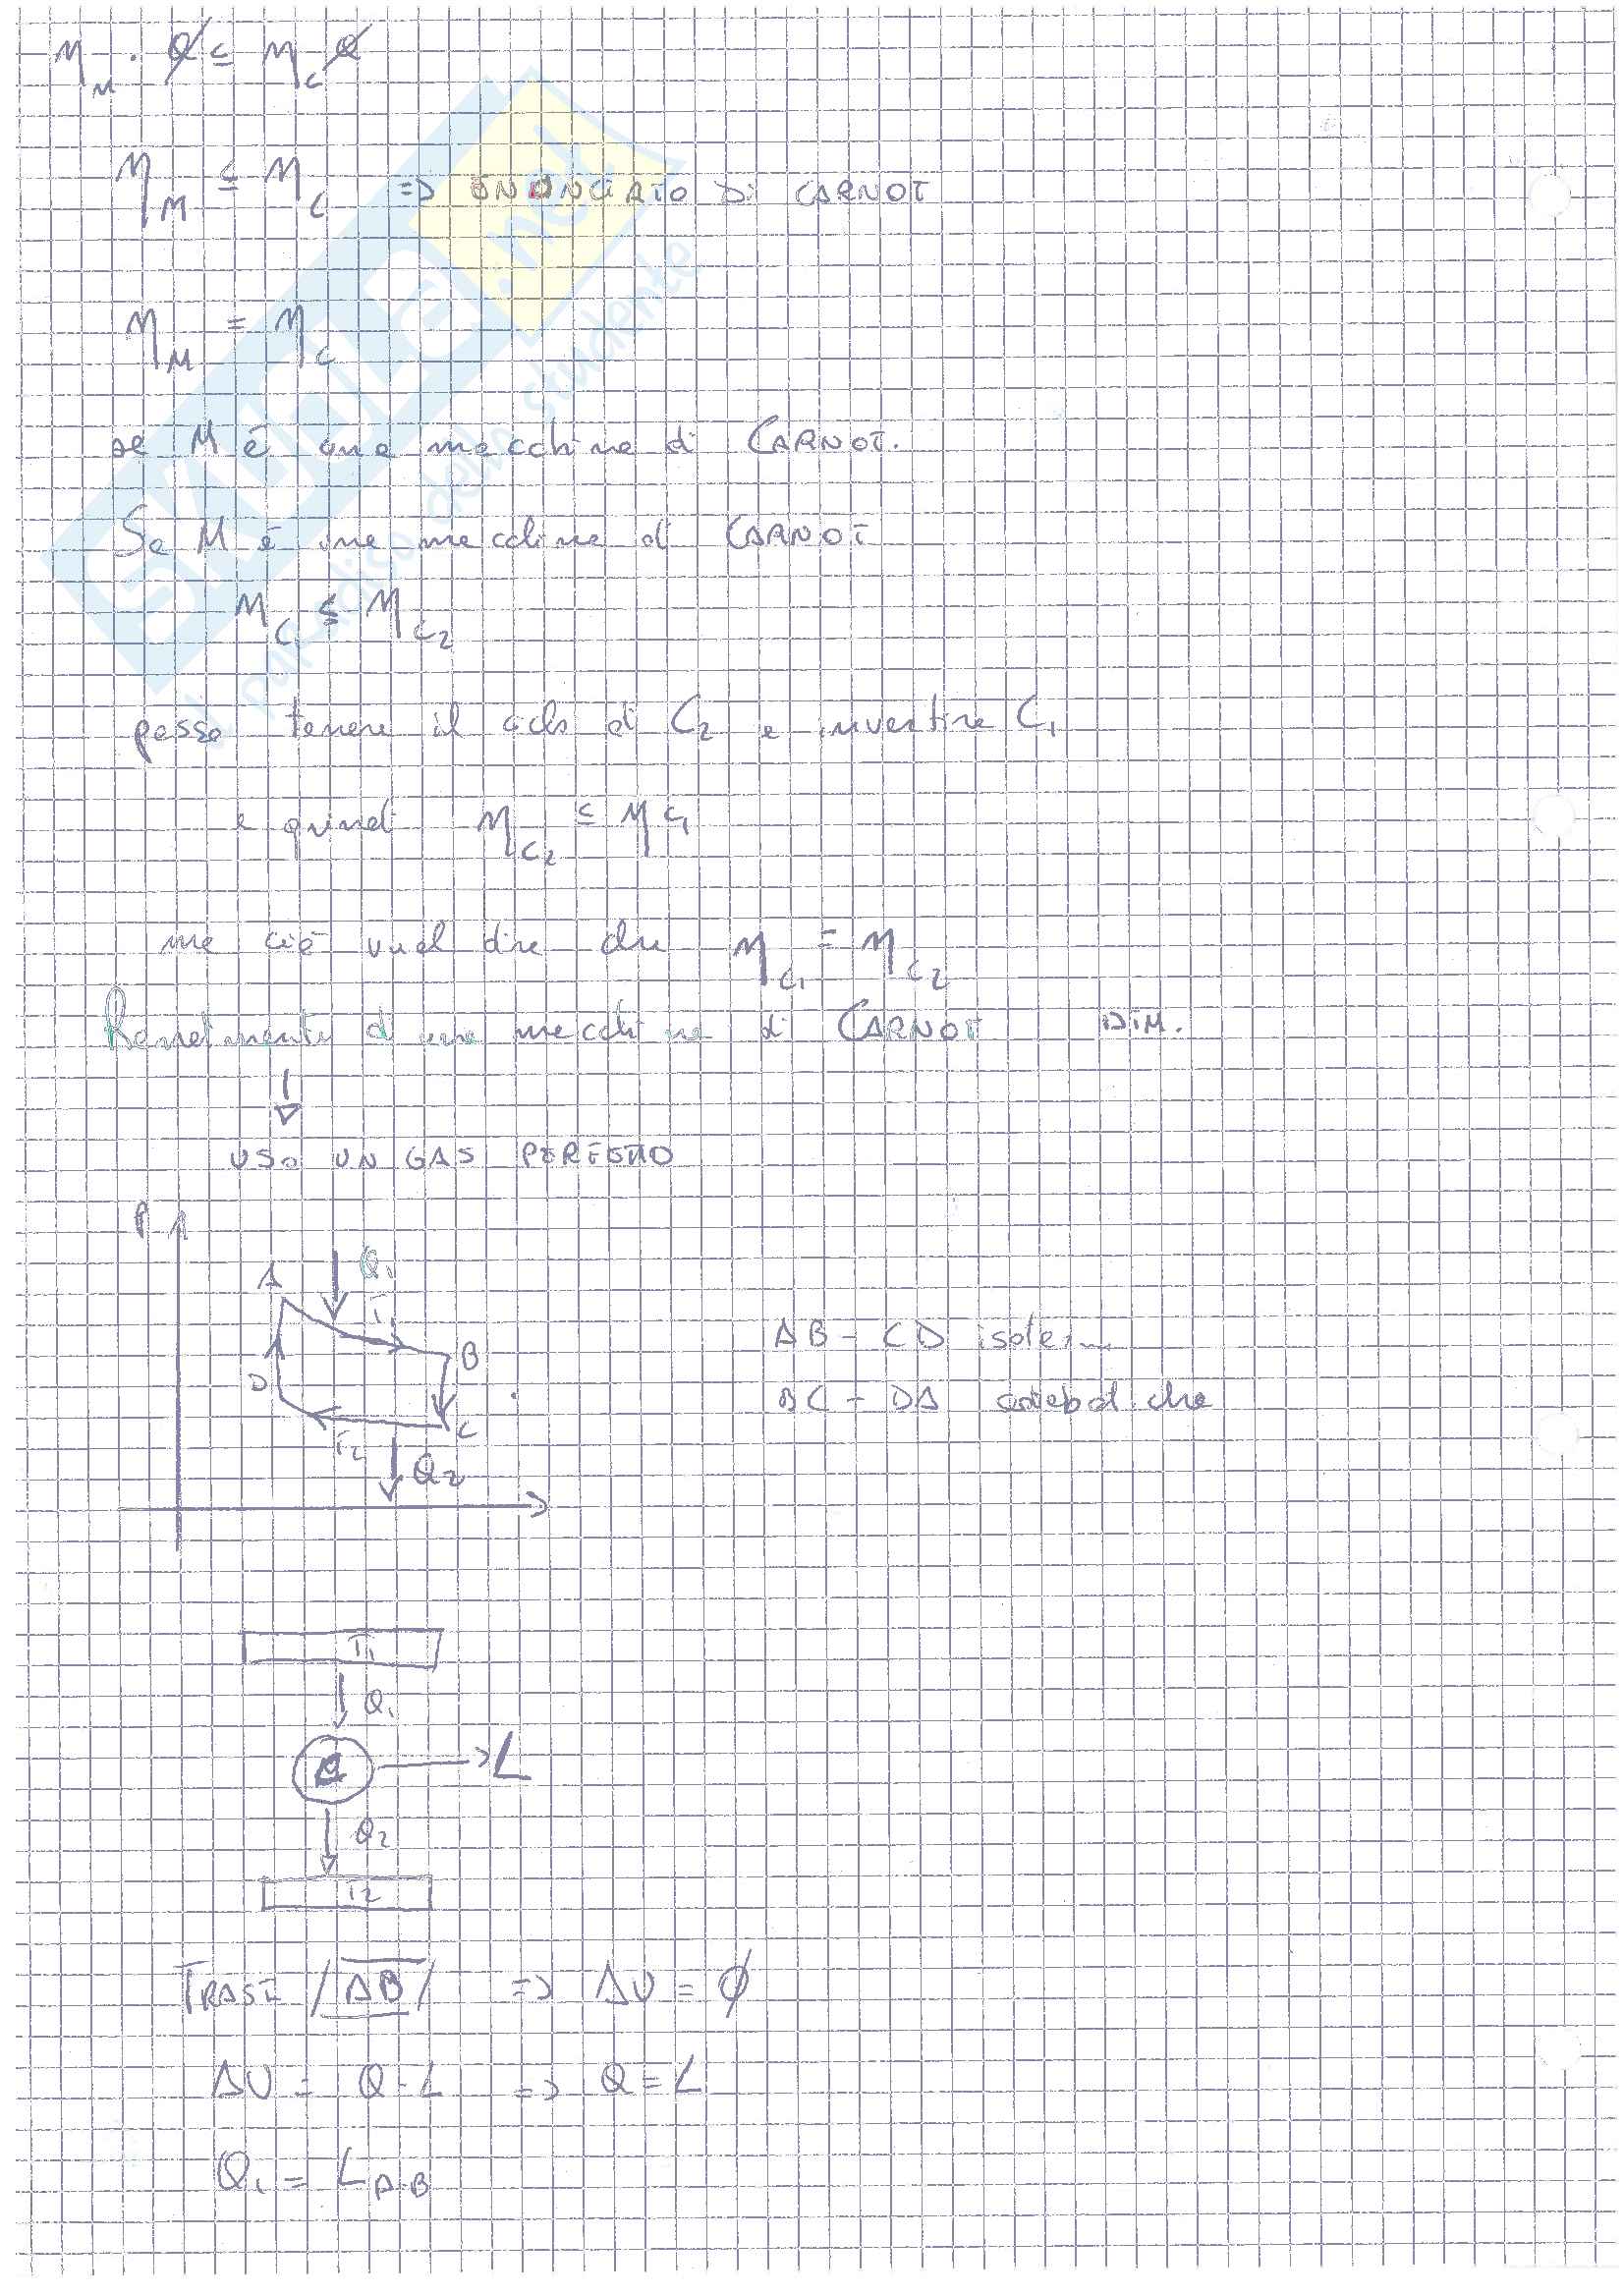 η_M · Q ≤ η_C Q
η_M ≤ η_C => ENUNCIATO DI CARNOT
η_M = η_C
se M è una macchina di CARNOT.
Se M è una macchina di CARNOT
η_C1 ≤ η_C2
posso tenere il ciclo di C2 e invertire C1
e quindi η_C2 ≤ η_C1
ma ciò vuol dire che η_C1 = η_C2
Rendimento di una macchina di CARNOT DIM.
↓
USO UN GAS PERFETTO
P
A Q1
T1
B
D
T2 C
Q2
AB - CD isoterm
BC - DA adiabatiche
T1
Q1
L
Q2
T2
TRASF AB => ΔU = 0
ΔU = Q - L => Q = L
Q1 = L_AB
SKUOLA.net
il paradiso dello studente